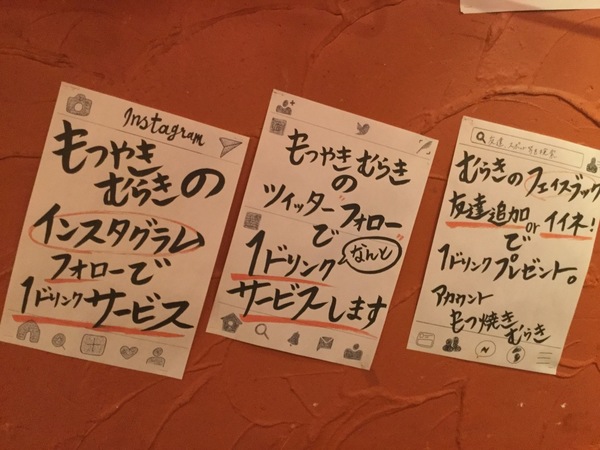 Instagram
もつやき
むらきの
インスタグラム
フォローで
1ドリンクサービス
もつやきむらき
の
ツイッターフォロー
で
1ドリンク
なんと
サービスします
友達、スポット等を検索
むらきのフェイスブック
友達追加orイイネ!
で
1ドリンクプレゼント。
アカウント
もつ焼き
むらき